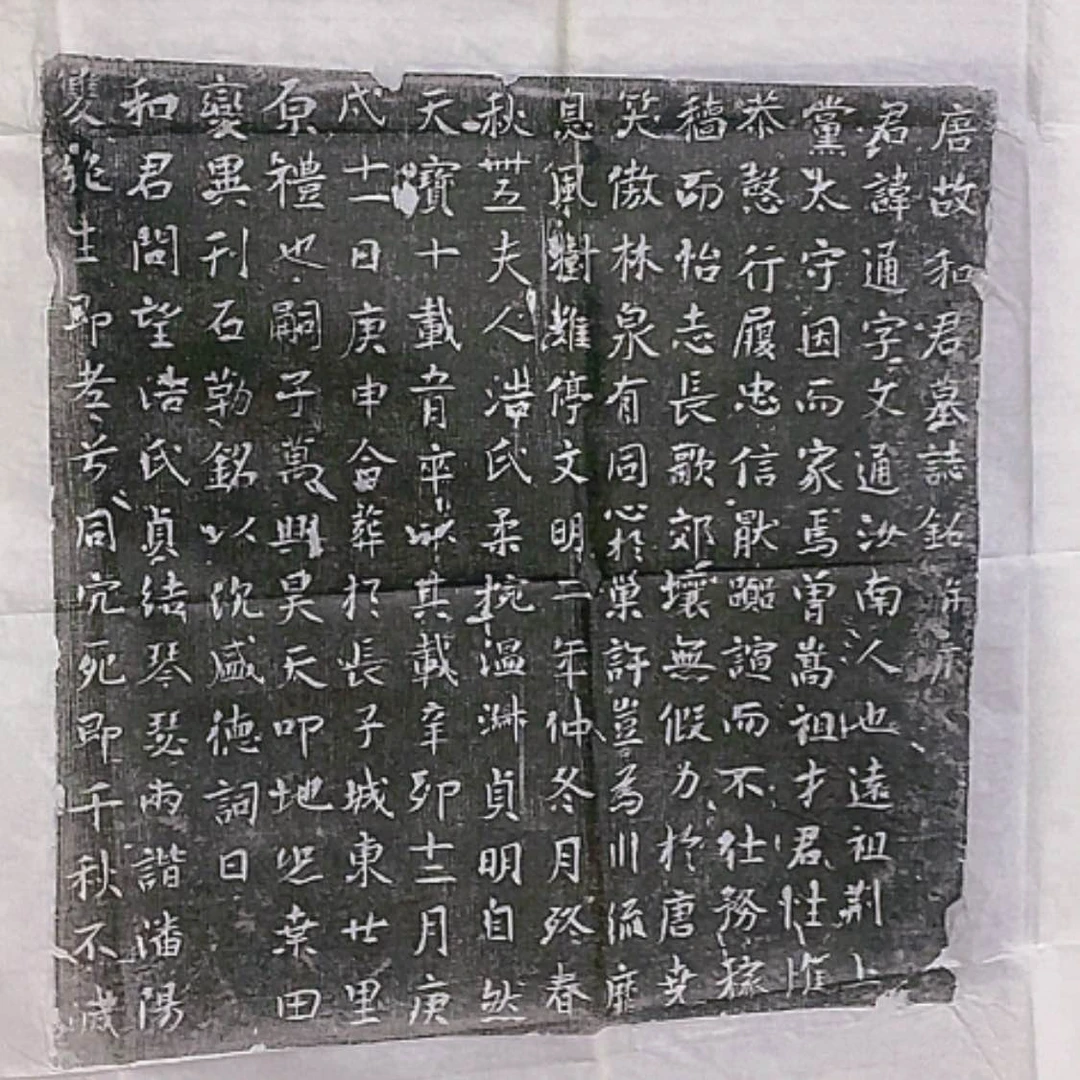 唐故和君墓誌銘并序
君諱通字文通汝南人也遠祖荆上
黨太守因而家焉曾嵩祖才君性惟
恭慤行履忠信猒躁諠而不仕務稼
穡而怡志長歌郊壤無假力於唐堯
笑傲林泉有同心於巢許豈爲川流靡
息風樹難停文明二年仲冬月終春
秋卌五夫人浩氏柔婉温淋貞明自然
天寶十載月卒以其載辛卯十二月庚
戌十一日庚申合葬於長子城東廿里
原禮也嗣子萬興昊天叩地恐桒田
變異刊石勒銘以沉盛德詞曰
和君問望浩氏貞結琴瑟兩諧潘陽
雙生即孝兮同穴死即千秋不滅